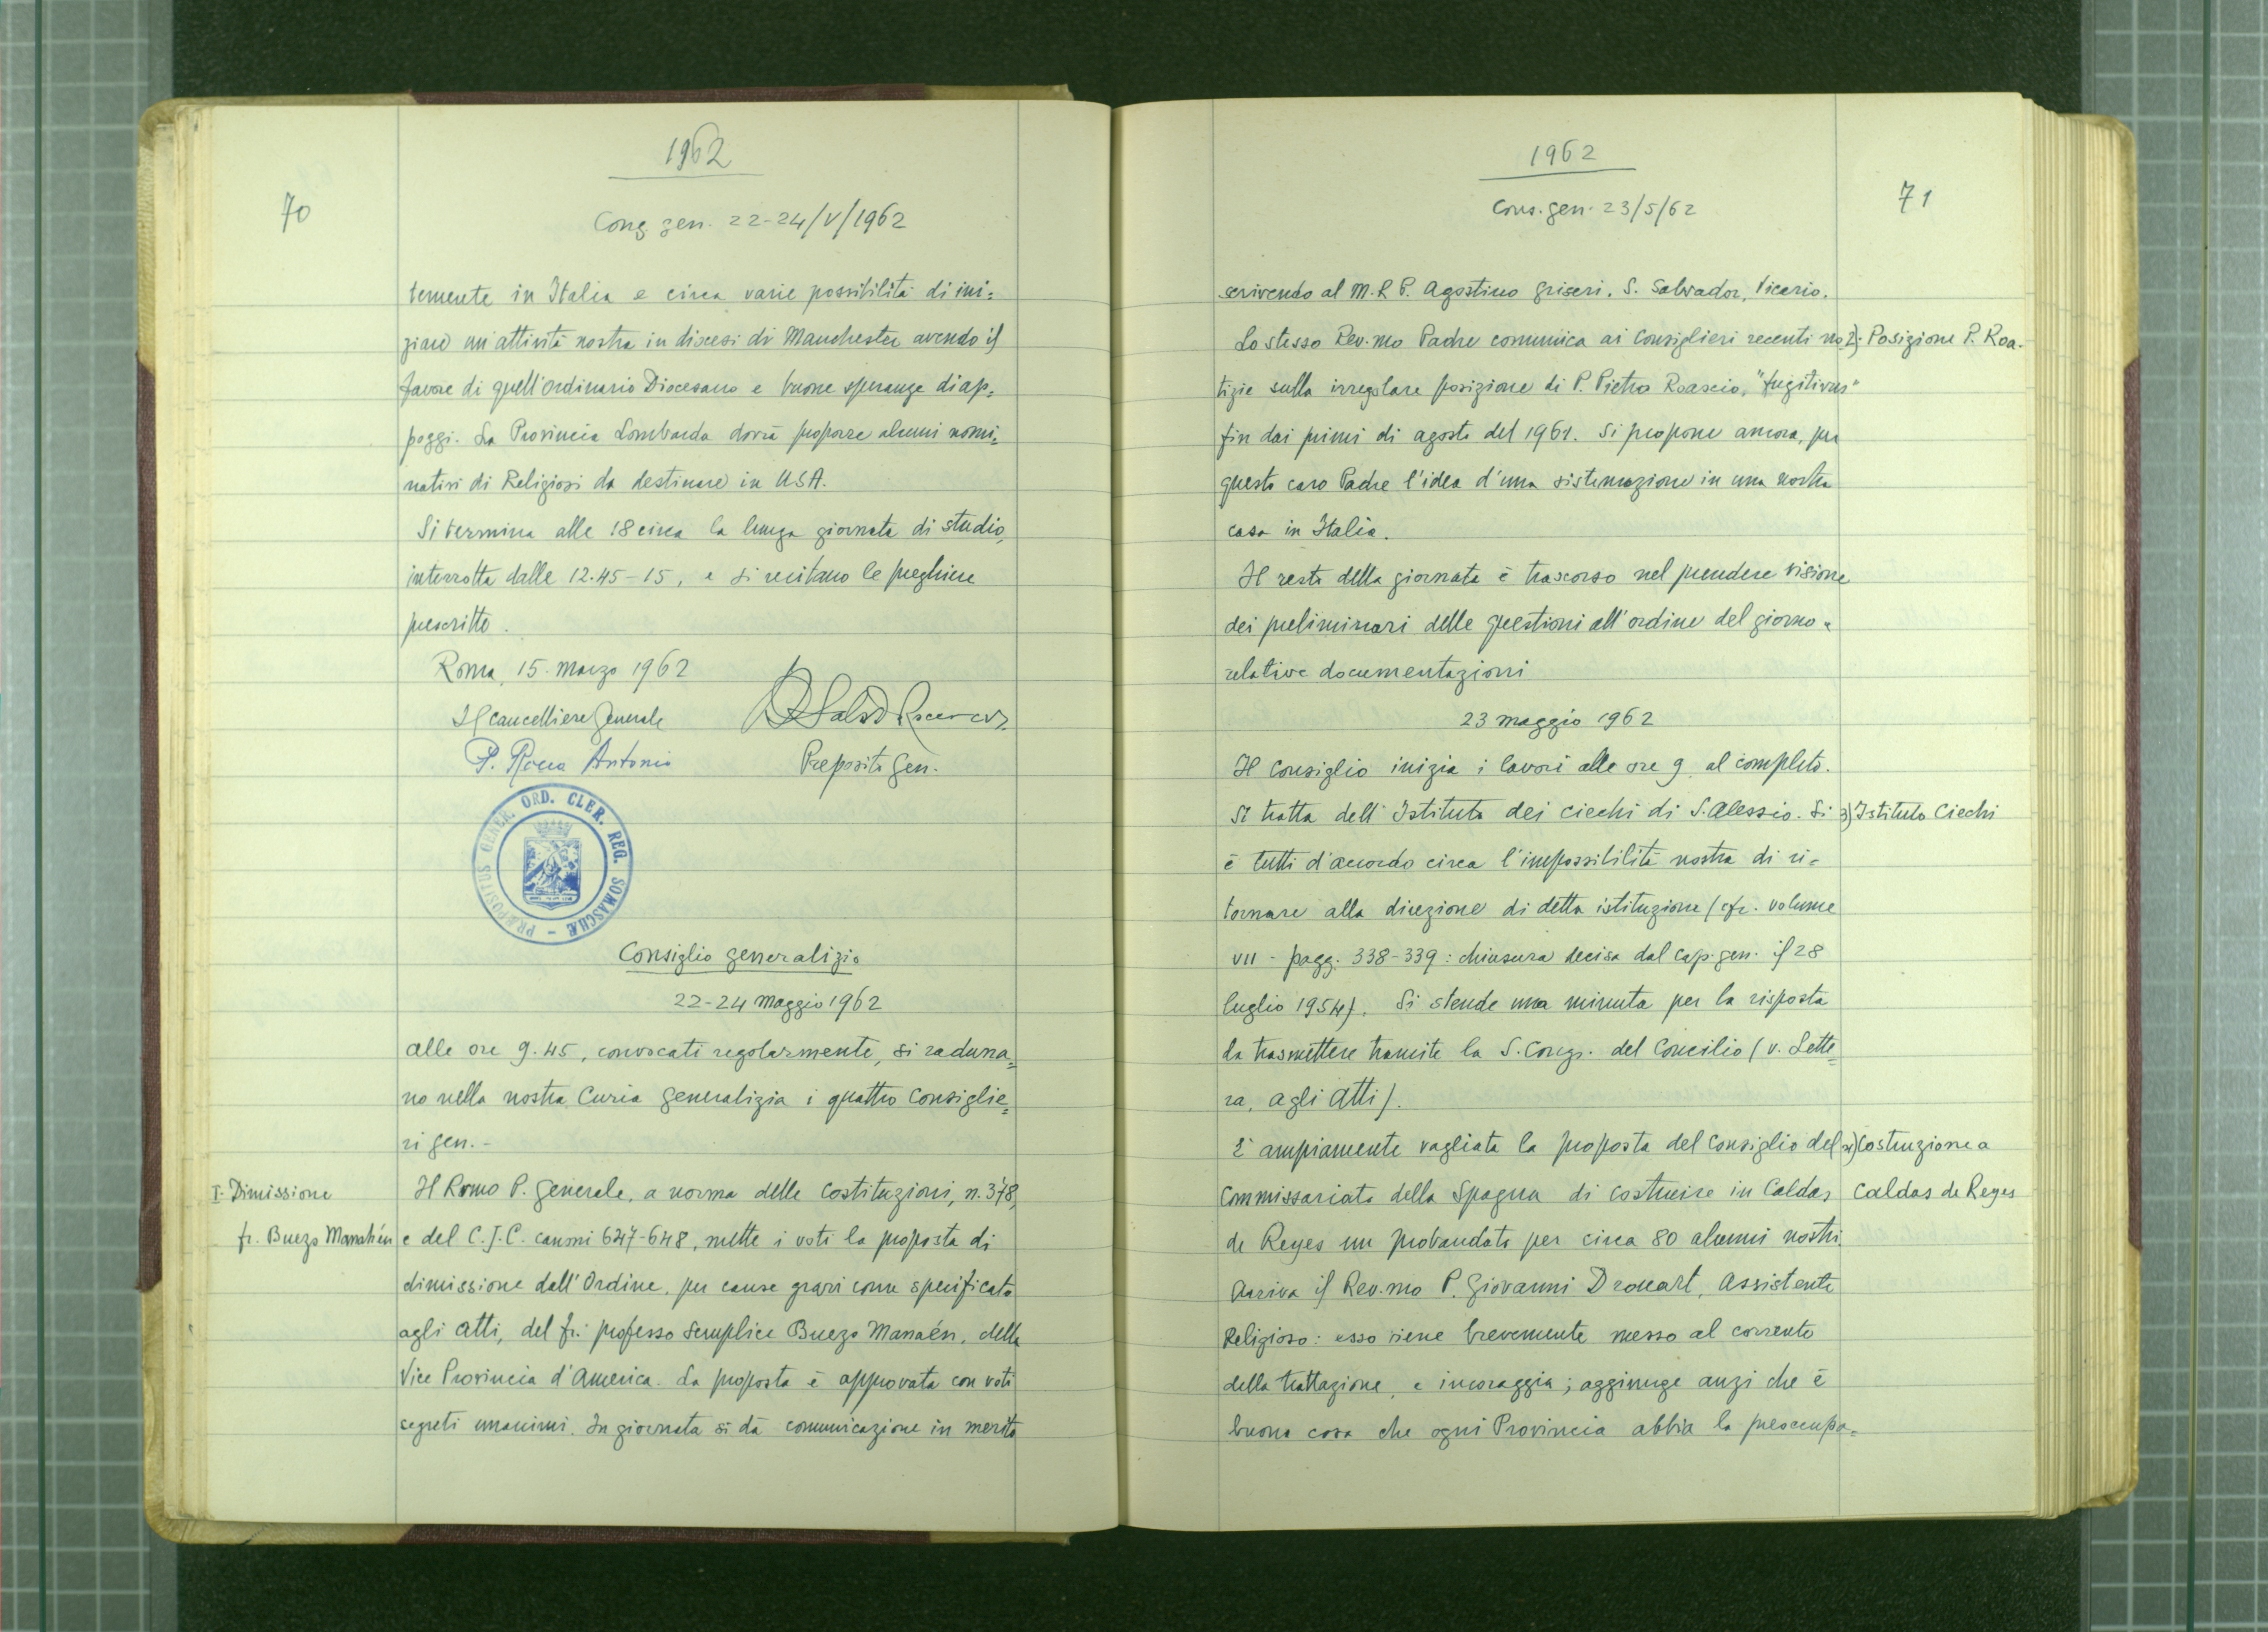 70
1962
Cong gen. 22-24/V/1962
temente in Italia e circa varie possibilità di ini=
ziare un'attività nostra in diocesi di Manchester avendo il
favore di quell'Ordinario Diocesano e buone speranze di ap=
poggi. La Provincia Lombarda dovrà proporre alcuni nomi=
nativi di Religiosi da destinare in USA.
Si termina alle 18 circa la lunga giornata di studio,
interrotta dalle 12.45-15, e si recitano le preghiere
prescritte.
Roma, 15 marzo 1962
Il Cancelliere Generale
P. Rocca Antonio
Preposito Gen.
PRÆPOSITUS GENER. ORD. CLER. REG. SOMASCHÆ -
Consiglio generalizio
22-24 Maggio 1962
Alle ore 9.45, convocati regolarmente, si raduna=
no nella nostra Curia Generalizia i quattro Consiglie=
ri gen.-
I. Dimissione
fr. Buezo Manahén
Il Rvmo P. Generale, a norma delle Costituzioni, n. 378,
e del C.J.C. canoni 647-648, mette i voti la proposta di
dimissione dall'Ordine, per cause gravi come specificato
agli Atti, del fr. professo semplice Buezo Manaén, della
Vice Provincia d'America. La proposta è approvata con voti
segreti unanimi. In giornata si dà comunicazione in merito
71
1962
Cons. gen. 23/5/62
scrivendo al M.R P. Agostino Griseri, S. Salvador, Vicario.
Lo stesso Rev.mo Padre comunica ai Consiglieri recenti no=
2). Posizione P. Roa-
tizie sulla irregolare posizione di P. Pietro Roascio, "fugitivus"
fin dai primi di agosto del 1961. Si propone ancora, per
questo caro Padre l'idea d'una sistemazione in una nostra
casa in Italia.
Il resto della giornata è trascorso nel prendere visione
dei preliminari delle questioni all'ordine del giorno e
relative documentazioni
23 maggio 1962
Il Consiglio inizia i lavori alle ore 9 al completo.
Si tratta dell'Istituto dei ciechi di S. Alessio. Si
3) Istituto Ciechi
è tutti d'accordo circa l'impossibilità nostra di ri=
tornare alla direzione di detta istituzione (cfr. volume
VII - pagg. 338-339: chiusura decisa dal Cap. gen. il 28
luglio 1954). Si stende una minuta per la risposta
da trasmettere tramite la S. Congr. del Concilio (v. Lette=
ra, agli Atti).
E' ampiamente vagliata la proposta del Consiglio del
4) Costruzione a
Commissariato della Spagna di costruire in Caldas
Caldas de Reyes
de Reyes un probandato per circa 80 alunni nostri.
Arriva il Rev.mo P. Giovanni Drouart, Assistente
Religioso: esso viene brevemente messo al corrente
della trattazione, e incoraggia; aggiunge anzi che è
buona cosa che ogni Provincia abbia la preoccupa=